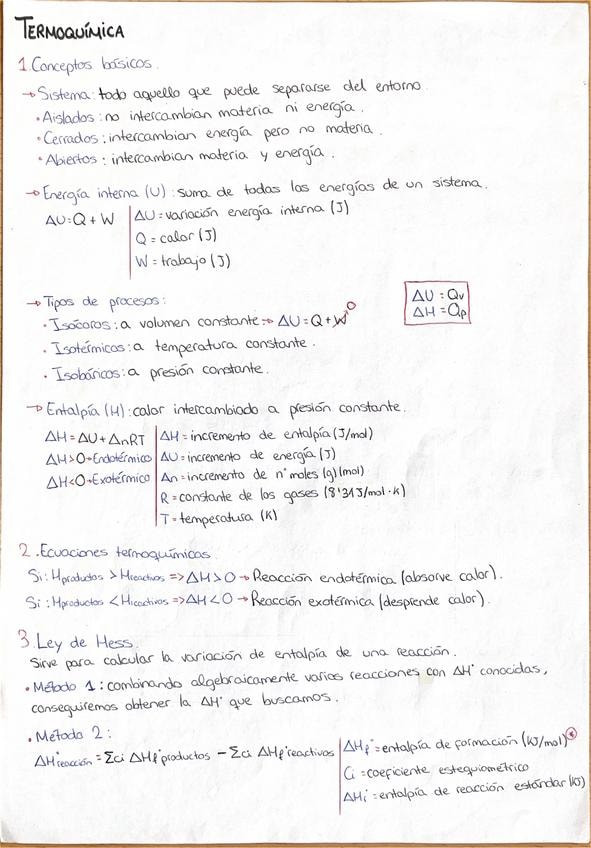 TERMOQUÍMICA
1. Conceptos básicos.
→ Sistema: todo aquello que puede separarse del entorno.
• Aislados: no intercambian materia ni energía.
• Cerrados: intercambian energía pero no materia.
• Abiertos: intercambian materia y energía.
→ Energía interna (U): suma de todas las energías de un sistema.
ΔU=Q+W | ΔU=variación energía interna (J)
Q=calor (J)
W=trabajo (J)
→ Tipos de procesos:
• Isócoros: a volumen constante → ΔU=Q+W 0
• Isotérmicos: a temperatura constante.
• Isobáricos: a presión constante.
ΔU=Qv
ΔH=Qp
→ Entalpía (H): calor intercambiado a presión constante.
ΔH=ΔU+ΔnRT | ΔH=incremento de entalpía (J/mol)
ΔH>0→Endotérmico | ΔU=incremento de energía (J)
ΔH<0→Exotérmico | Δn=incremento de nº moles (g) (mol)
R=constante de los gases (8'31J/mol·k)
T=temperatura (K)
2. Ecuaciones termoquímicas.
Si: Hproductos > Hreactivos => ΔH>0 → Reacción endotérmica (absorve calor).
Si: Hproductos < Hreactivos => ΔH<0 → Reacción exotérmica (desprende calor).
3. Ley de Hess.
Sirve para calcular la variación de entalpía de una reacción.
• Método 1: combinando algebraicamente varias reacciones con ΔH° conocidas,
conseguiremos obtener la ΔH° que buscamos.
• Método 2:
ΔH°reacción = Σci ΔHf°productos − Σci ΔHf°reactivos | ΔHf°=entalpía de formación (kJ/mol)*
Ci=coeficiente estequiométrico
ΔHi°=entalpía de reacción estándar (kJ)